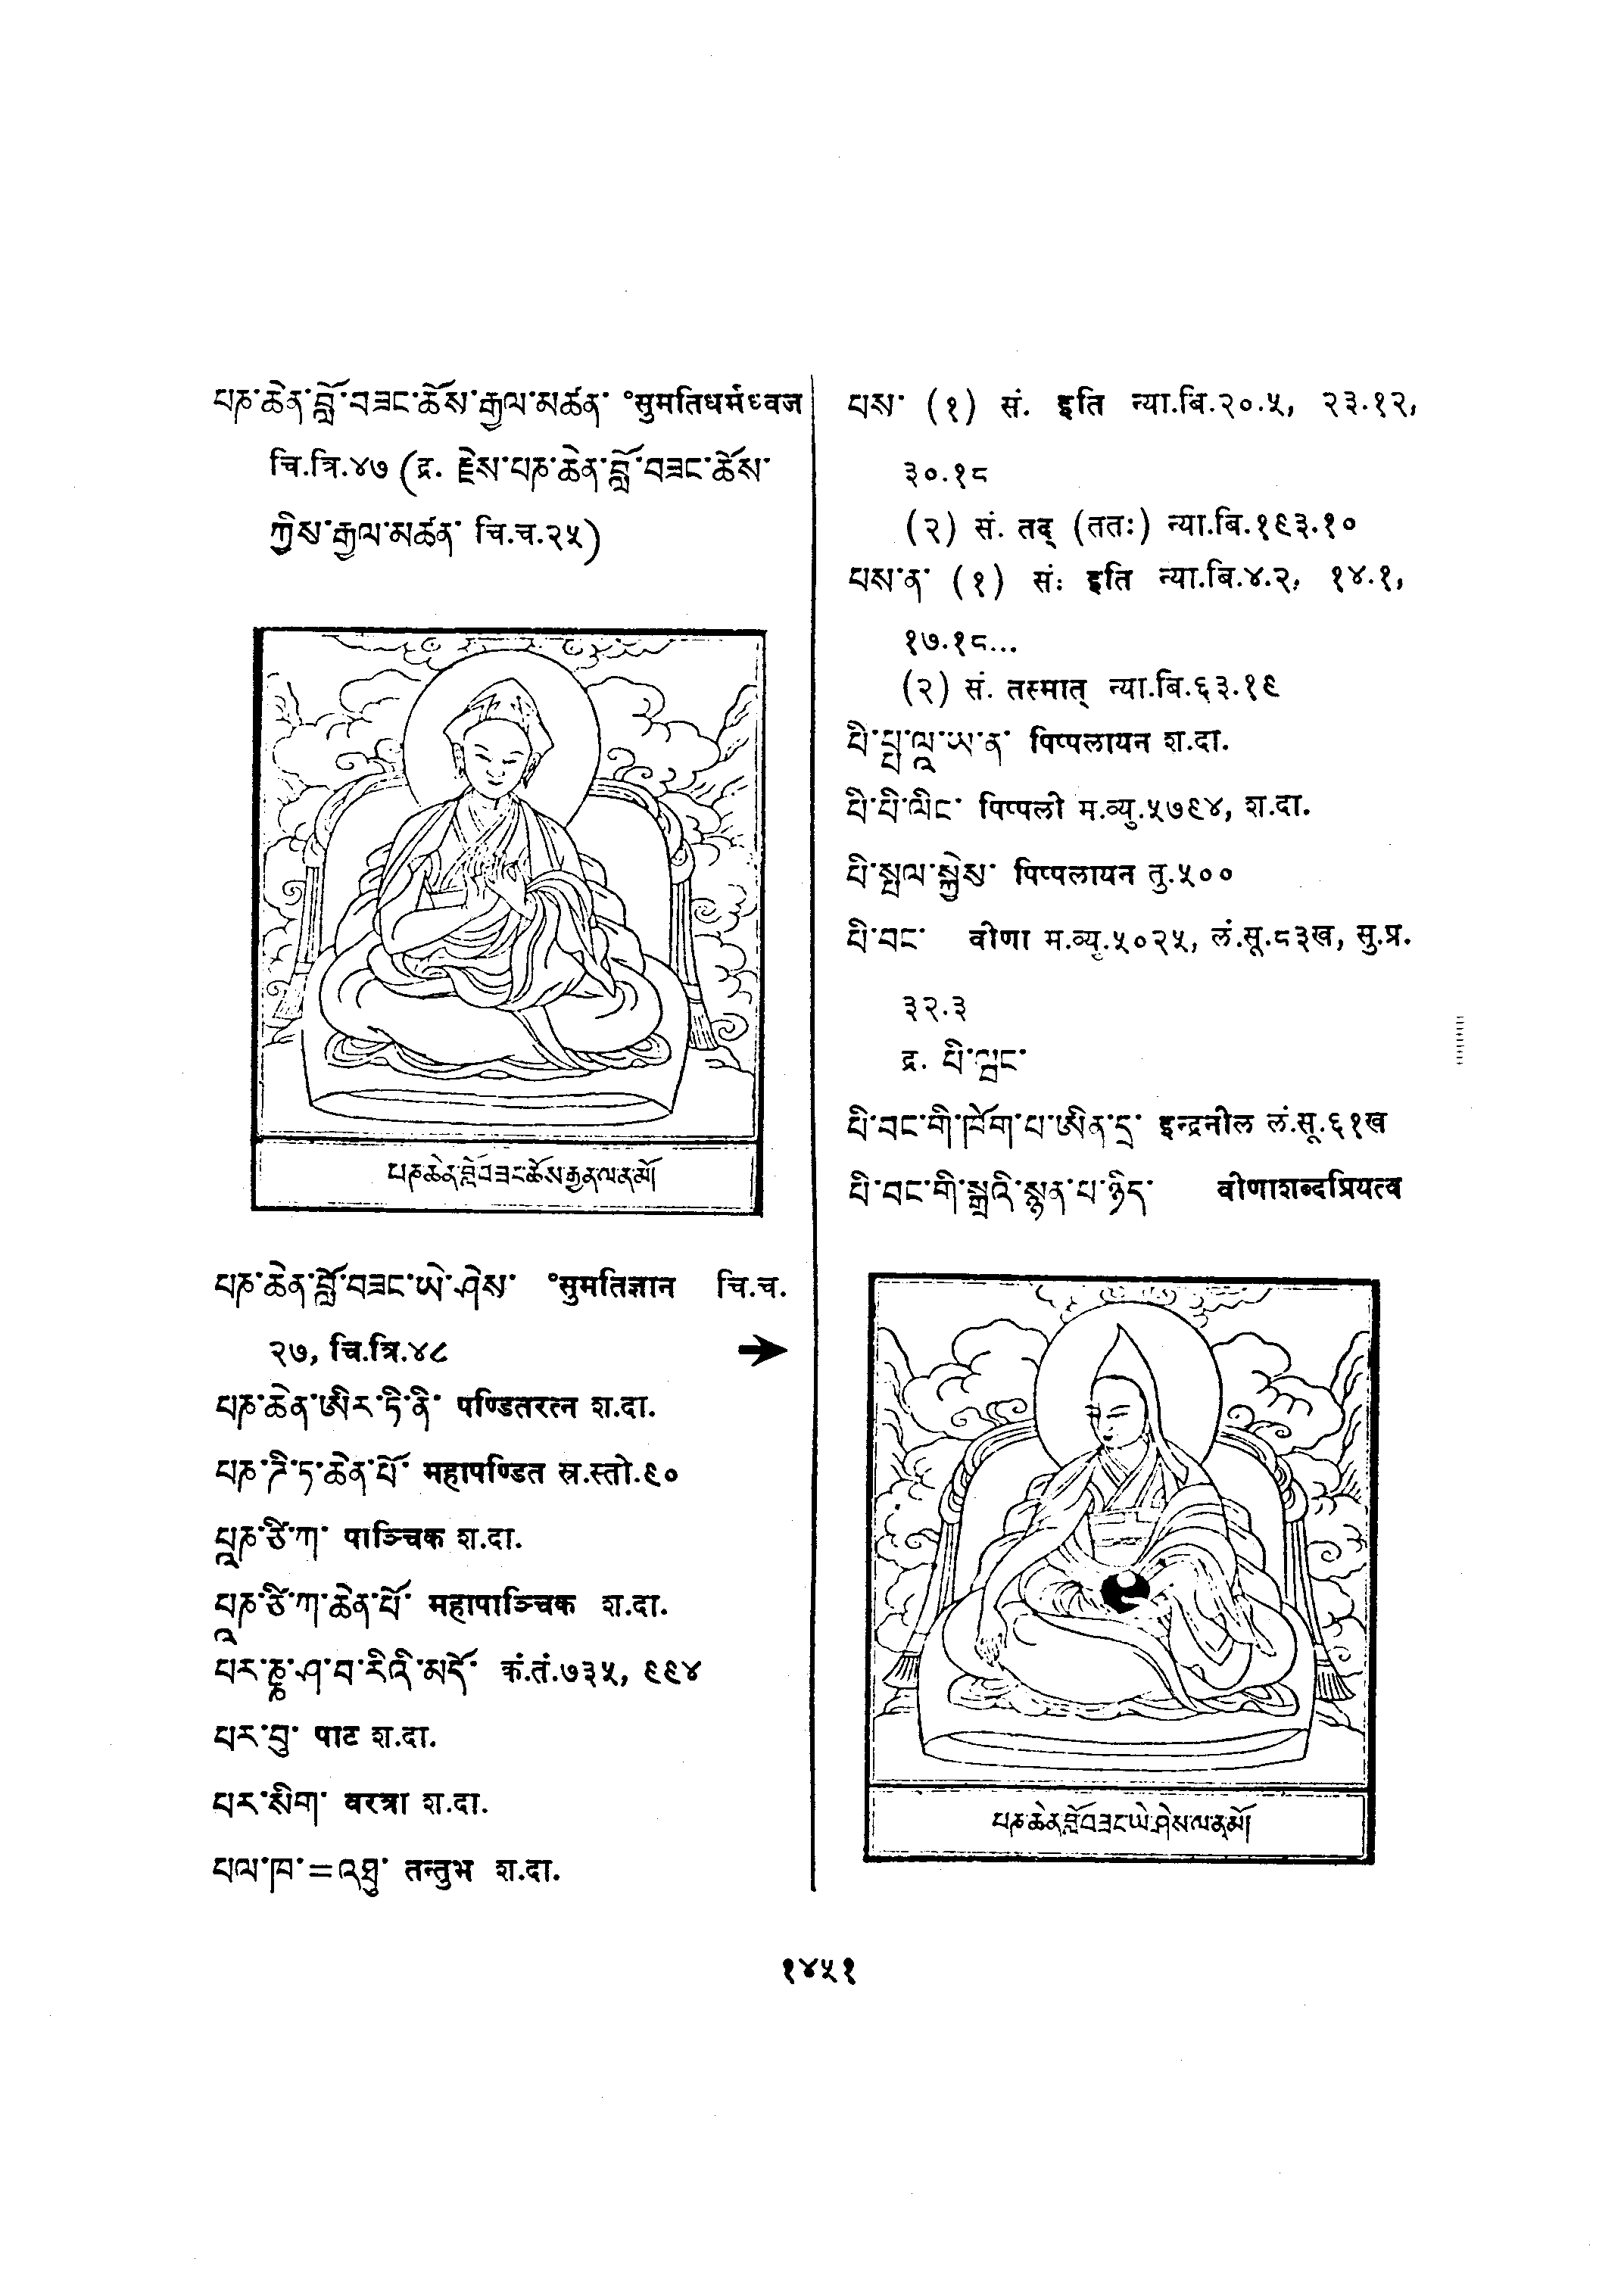 པཎ་ཆེན་བློ་བཟང་ཆོས་རྒྱལ་མཚན་ °सुमतिधर्मध्वज
चि.त्रि.४७ (द्र. རྗེས་པཎ་ཆེན་བློ་བཟང་ཆོས་
ཀྱིས་རྒྱལ་མཚན་ चि.च.२५)
པཎ་ཆེན་བློ་བཟང་ཆོས་རྒྱན་ལ་ན་མོ།
པཎ་ཆེན་བློ་བཟང་ཡེ་ཤེས་ °सुमतिज्ञान चि.च.
२७, चि.त्रि.४८ ➔
པཎ་ཆེན་ཨིར་ཏི་ནི་ पण्डितरत्न श.दा.
པཎ་ཌི་ཏ་ཆེན་པོ་ महापण्डित स्र.स्तो.९०
པཱཎ་ཙི་ཀ་ पाञ्चिक श.दा.
པཱཎ་ཙི་ཀ་ཆེན་པོ་ महापाञ्चिक श.दा.
པར་ཎྞ་ཤ་བ་རིའི་མདོ་ क.तं.७३५, ९९४
པར་བུ་ पाट श.दा.
པར་སིག་ वरत्रा श.दा.
པལ་ཁ་=འབྲུ་ तन्तुभ श.दा.
པས་ (१) सं. इति न्या.बि.२०.५, २३.१२,
३०.१८
(२) सं. तद् (ततः) न्या.बि.१९३.१०
པས་ན་ (१) सं. इति न्या.बि.४.२, १४.१,
१७.१८...
(२) सं. तस्मात् न्या.बि.६३.१९
པི་པྤ་ལཱ་ཡ་ན་ पिप्पलायन श.दा.
པི་པི་ལིང་ पिप्पली म.व्यु.५७९४, श.दा.
པི་སྤལ་སྐྱེས་ पिप्पलायन तु.५००
པི་བང་ वीणा म.व्यु.५०२५, लं.सू.८३ख, सु.प्र.
३२.३
द्र. པི་ཝང་
པི་བང་གི་ཁོག་པ་ཨིན་དྲ་ इन्द्रनील लं.सू.६१ख
པི་བང་གི་སྒྲའི་སྙན་པ་ཉིད་ वीणाशब्दप्रियत्व
པཎ་ཆེན་བློ་བཟང་ཡེ་ཤེས་ལ་ན་མོ།
१४५१